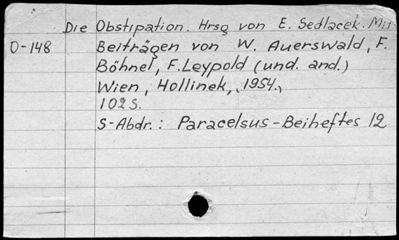 Die Obstipation. Hrsg von E. Sedlacek. Mit
O-148 Beiträgen von W. Auerswald, F.
Böhnel, F. Leypold (und. and.)
Wien, Hollinek, 1954.
102 S.
S-Abdr.: Paracelsus-Beiheftes 12